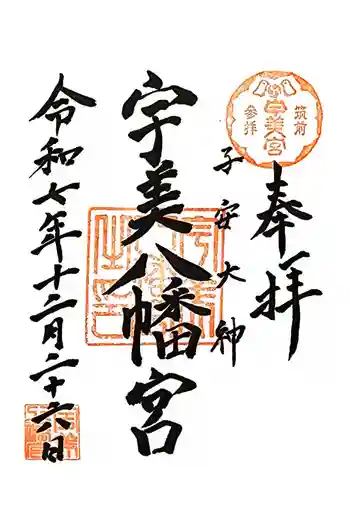 筑前
宇美宮
参拝
奉拝
子安大神
宇美八幡宮
令和七年十二月二十六日